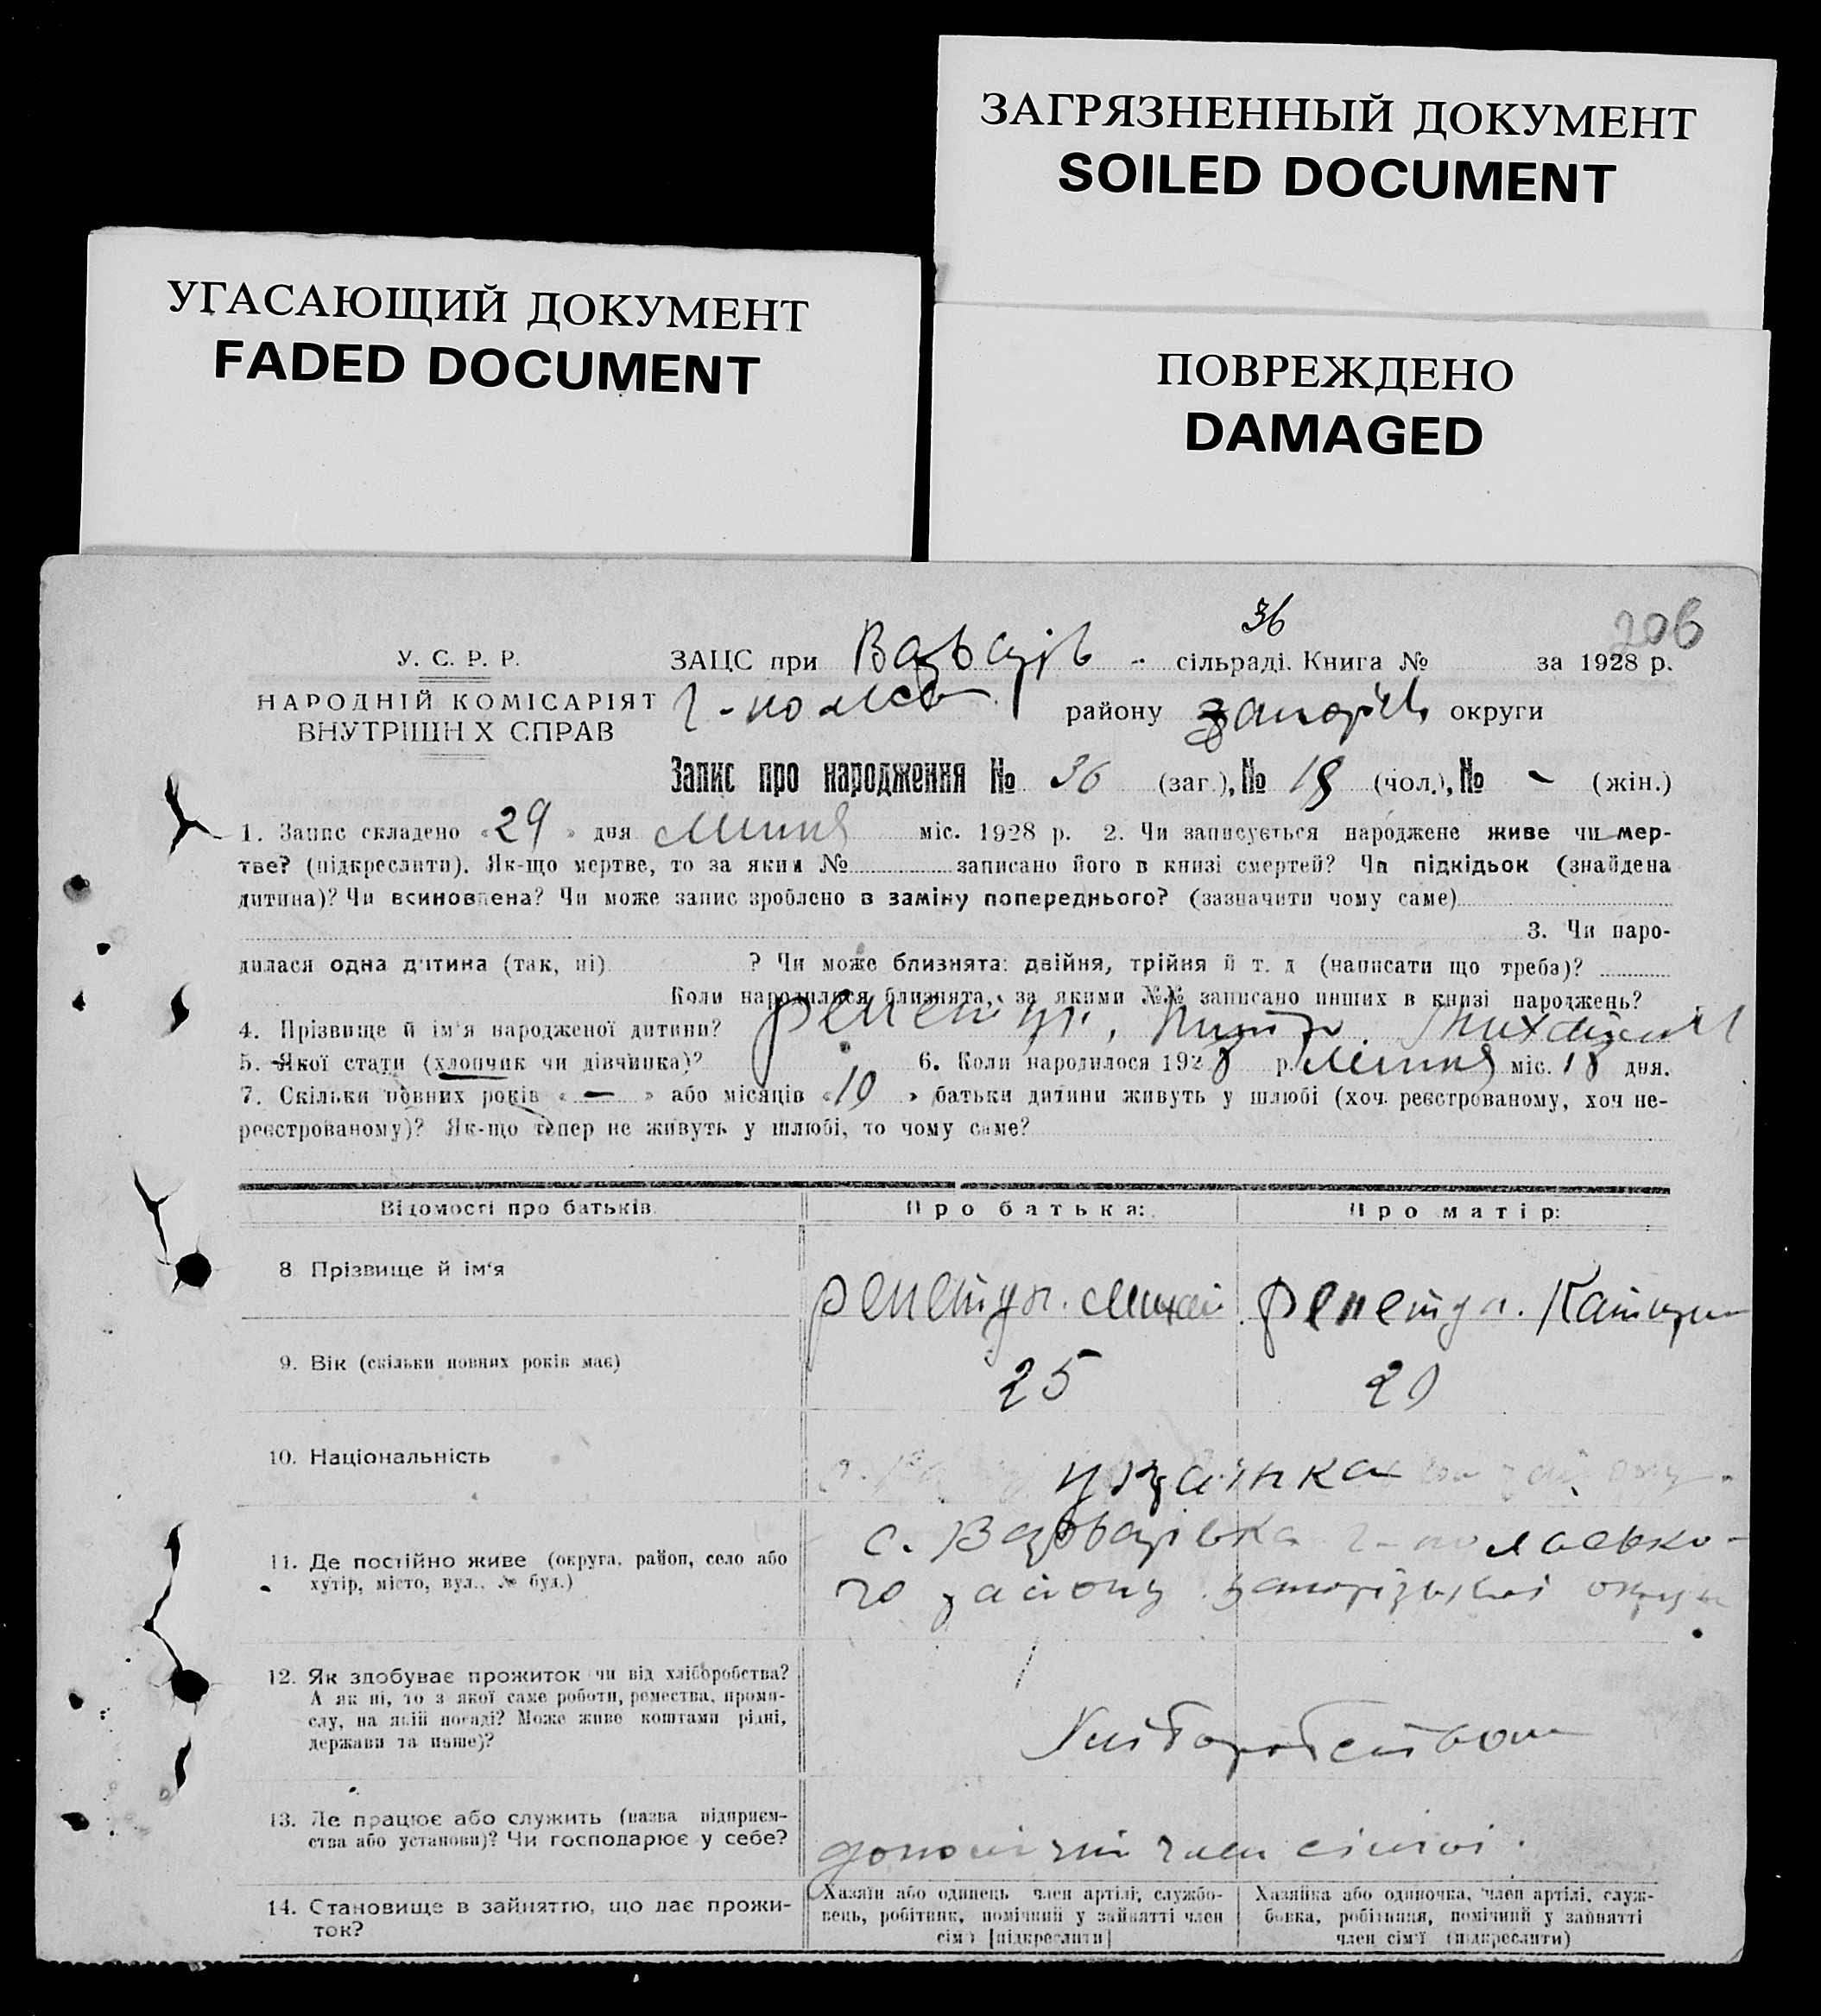 ЗАГРЯЗНЕННЫЙ ДОКУМЕНТ
SOILED DOCUMENT
УГАСАЮЩИЙ ДОКУМЕНТ
FADED DOCUMENT
ПОВРЕЖДЕНО
DAMAGED
36
206
У. С. Р. Р.
ЗАЦС при Варварів - сільраді. Книга № за 1928 р.
НАРОДНІЙ КОМІСАРІЯТ
ВНУТРІШН Х СПРАВ
Г-польск району Запоріз округи
Запис про народження № 36 (заг.), № 18 (чол.), № - (жін.)
1. Запис складено «29» дня Липня міс. 1928 р. 2. Чи записується народжене живе чи мер-
тве? (підкреслити). Як-що мертве, то за яким № записано його в книзі смертей? Чи підкідьок (знайдена
дитина)? Чи всиновлена? Чи може запис зроблено в заміну попереднього? (зазначити чому саме)
3. Чи наро-
дилася одна дитина (так, ні) ? Чи може близнята: двійня, трійня й т. д (написати що треба)?
Коли народилися близнята, за якими №№ записано инших в книзі народжень?
4. Прізвище й ім'я народженої дитини? Репетун,
5. Якої стати (хлопчик чи дівчинка)? 6. Коли народилося 1928 р. Липня міс. 18 дня.
7. Скільки повних років « — » або місяців «10» батьки дитини живуть у шлюбі (хоч реєстрованому, хоч не-
реєстрованому)? Як-що тепер не живуть у шлюбі, то чому саме?
Відомості про батьків
Про батька:
Про матір:
8. Прізвище й ім'я
Репетун. Михай
Репетун. Катерин
9. Вік (скільки повних років має)
25
20
10. Національність
українка
11. Де постійно живе (округа, район, село або
хутір, місто, вул., № буд.)
с. Варварівка Г-польсько-
го району Запорізької округи
12. Як здобуває прожиток чи від хліборобства?
А як ні, то з якої саме роботи, ремества, проми-
слу, на якій посаді? Може живе коштами рідні,
держави та инше)?
Хліборобством
13. Де працює або служить (назва підприєм-
ства або установи)? Чи господарює у себе?
допомічний член сімї.
14. Становище в зайняттю, що дає прожи-
ток?
Хазяїн або одинець член артілі, службо-
вець, робітник, помічний у зайнятті член
сім'ї [підкреслити]
Хазяйка або одиночка, член артілі, служ-
бовка, робітниця, помічний у зайнятті
член сім'ї (підкреслити)